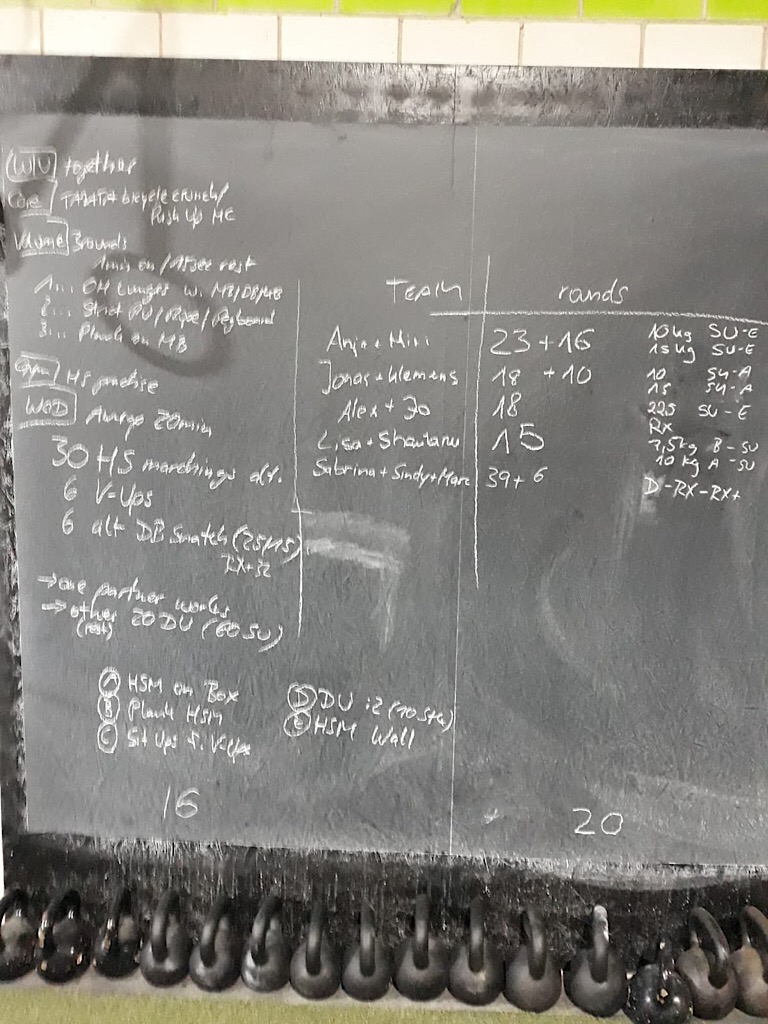 WU together
Core TABATA bicycle crunch/
Push Up MC
Volume 3 rounds
1min on / 15sec rest
1... OH Lunges w. MB/DB/MB
2... Strict PU / Rope / Pegboard
3... Plank on MB
Gym HS practise
WOD Amrap 20min
30 HS marchings alt.
6 V-Ups
6 alt DB Snatch (25/15)
RX+32
→ one partner works
→ other 20 DU (60 SU)
(rest)
A HSM on Box
B Plank HSM
C Sit Ups f. V-Ups
D DU :2 (10 Stk)
E HSM Wall
16
TEAM rands
Anja + Miri 23 + 16 10kg SU-E
15kg SU-E
Jonas + Klemens 18 + 10 10 SU-A
15 SU-A
Alex + Jo 18 22,5 SU-E
RX
Lisa + Shantanu 15 7,5kg B-SU
10kg A-SU
Sabrina + Sindy + Marc 39 + 6 D-RX-RX+
20